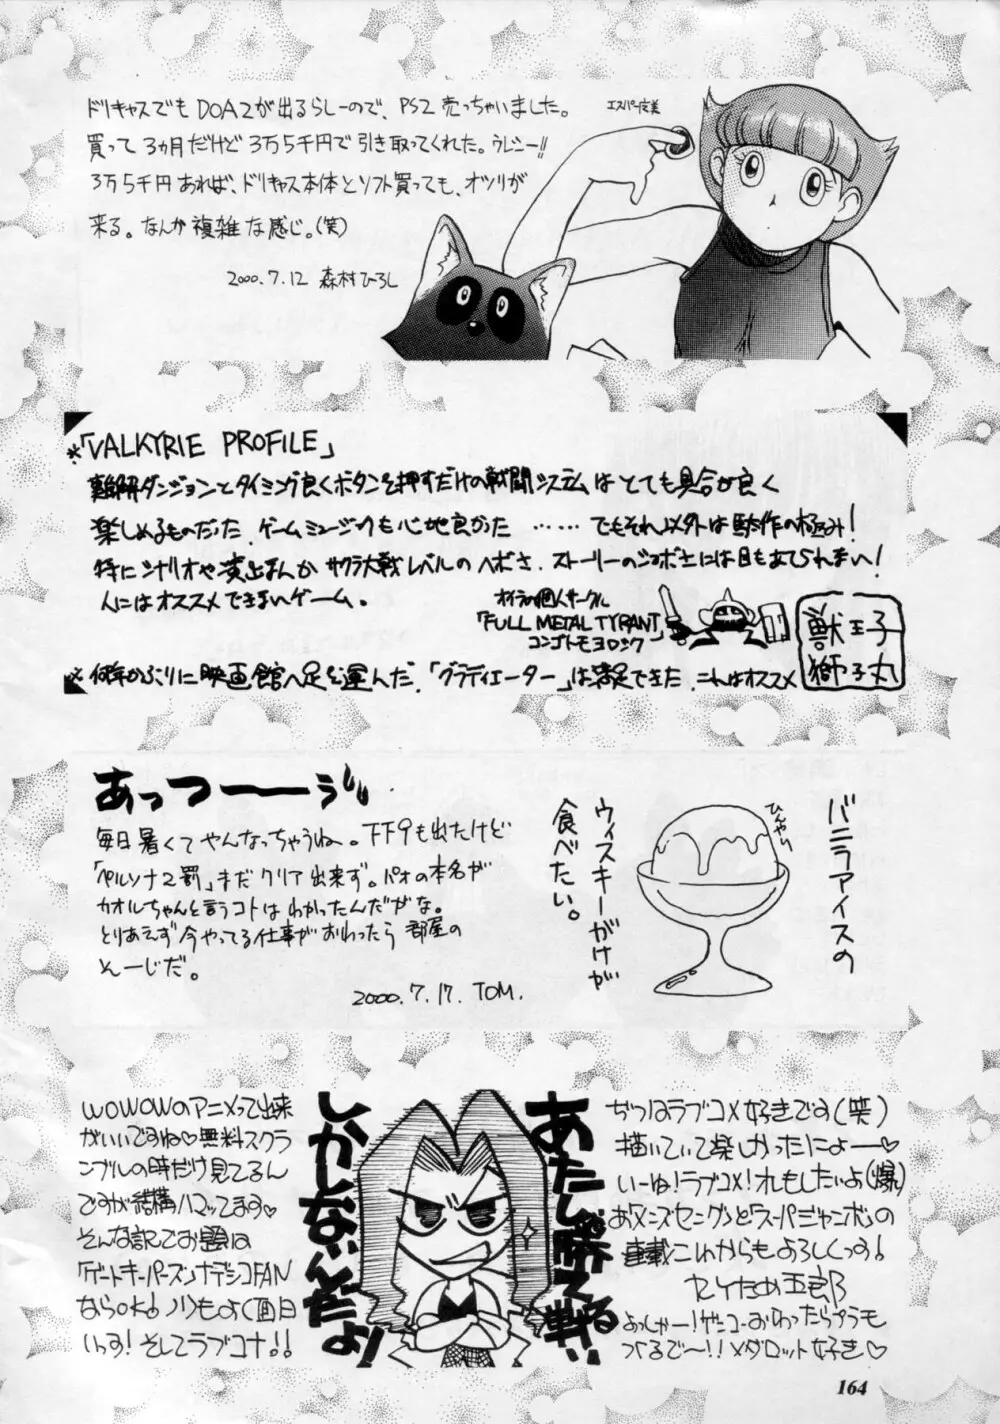 ドリキャスでもDOA2が出るらしーので、PS2売っちゃいました。
買って3ヵ月だけど3万5千円で引き取ってくれた。ウレシー!!
3万5千円あれば、ドリキャス本体とソフト買っても、オツリが
来る。なんか複雑な感じ。(笑)
2000.7.12 森村ひろし
エスパー
※「VALKYRIE PROFILE」
難解ダンジョンとタイミング良くボタンを押すだけの戦闘システムはとても具合が良く
楽しめるものだった。ゲームミュージックも心地良かった ……でもそれ以外は駄作の極み!
特にシナリオや演出なんかサクラ大戦レベルのヘボさ、ストーリーのショボさには目もあてられない!
人にはオススメできないゲーム。
オイラの個人サークル
「FULL METAL TYRANT」
コンゴトモヨロシク
獣王子
獅子丸
※何年かぶりに映画館へ足を運んだ。「グラディエーター」は満足できた。これはオススメ
あっつーーう゛
毎日暑くてやんなっちゃうね。FF9も出たけど
「ペルソナ2罰」まだクリア出来ず。パオの本名が
カオルちゃんと言うコトはわかったんだがな。
とりあえず今やってる仕事がおわったら部屋の
そーじだ。
2000.7.17. TOM.
バニラアイスの
ウィスキーがけが
食べたい。
ひんやり
ぢつはラブコメ好きです(笑)
描いていて楽しかったにょー♡
いーね!ラブコメ!オレもしたいよ(爆)
あ「メンズヤング」と「スーパージャンボ」の
連載これからもよろしくっす!
よっしゃー!ゲンコーおわったらプラモ
つくるで〜!!メダロット好き♡
あたしゃ勝てる戦い
しかしないんだよ!
WOWOWのアニメって出来
がいいですね♡無料スクラ
ンブルの時だけ見てるん
ですが結構ハマってます♡
そんな訳でお題は
「ゲートキーパーズ」ナデシコFAN
ならOK! ノリもよく(面白
いっす! そしてラブコメ!!
164